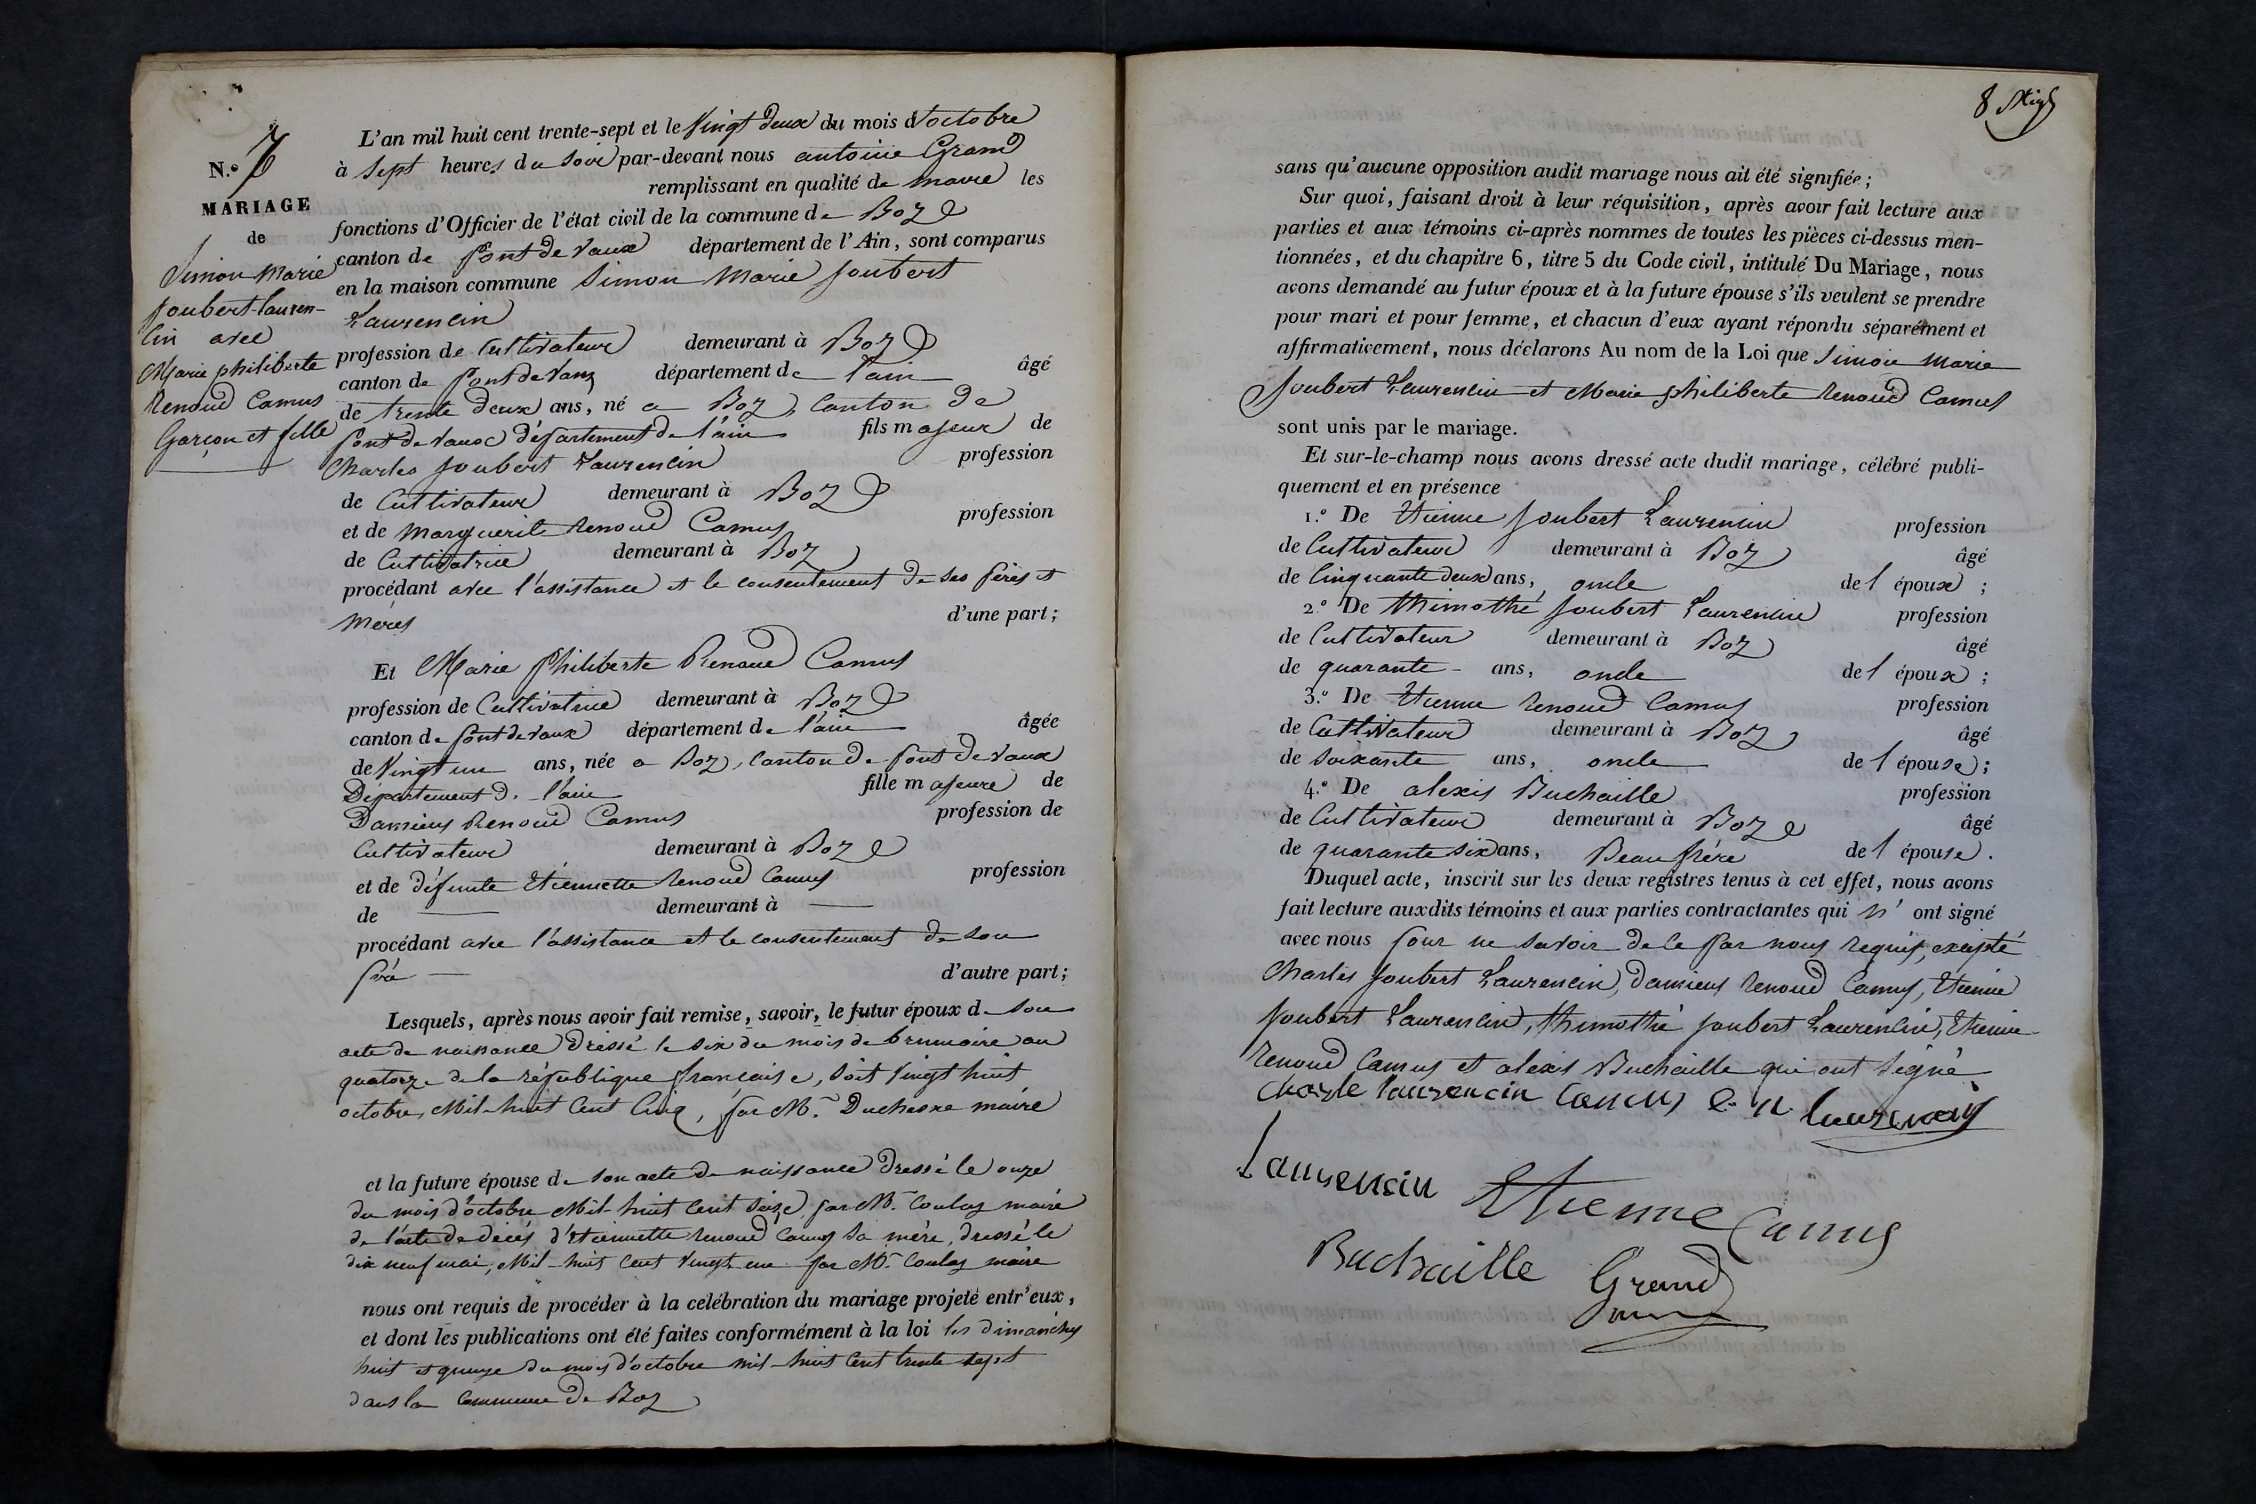 N.° 7
MARIAGE
de
Simon Marie
Joubert-lauren-
cin avec
Marie philiberte
Renoud Camus
Garçon et fille
L'an mil huit cent trente-sept et le Vingt deux du mois d'octobre
à sept heures du soir par-devant nous antoine Grand
remplissant en qualité de maire les
fonctions d'Officier de l'état civil de la commune de Boz
canton de Pont de Vaux département de l'Ain, sont comparus
en la maison commune Simon Marie Joubert
Laurencin
profession de Cultivateur demeurant à Boz
canton de Pont de Vaux département de l'ain âgé
de trente deux ans, né a Boz, canton de
pont de Vaux département de l'ain fils majeur de
Charles Joubert Laurencin profession
de Cultivateur demeurant à Boz
et de Marguerite Renoud Camus profession
de Cultivatrice demeurant à Boz
procédant avec l'assistance et le consentement de ses pères et
Mères d'une part;
Et Marie Philiberte Renoud Camus
profession de Cultivatrice demeurant à Boz
canton de pont de vaux département de l'ain âgée
de Vingt un ans, née a Boz, canton de pont de vaux
Département de l'ain fille majeure de
Damiens Renoud Camus profession de
Cultivateur demeurant à Boz
et de défunte Etiennette Renoud Camus profession
de — demeurant à —
procédant avec l'assistance et le consentement de son
père — d'autre part;
Lesquels, après nous avoir fait remise, savoir, le futur époux de son
acte de naissance dressé le six du mois de brumaire an
quatorze de la république française, soit vingt huit
octobre Mil-huit Cent Cinq, par M.r Duchesne maire
et la future épouse de son acte de naissance dressé le onze
du mois d'octobre Mil-huit cent seize par M.r Coulas maire
de l'acte de décès d'Etiennette Renoud Camus sa mère, dressé le
dix neuf mai, Mil-huit Cent Vingt un par M.r Coulas maire
nous ont requis de procéder à la celébration du mariage projeté entr'eux,
et dont les publications ont été faites conformément à la loi les dimanches
huit et quinze du mois d'octobre mil-huit Cent trente sept
dans la commune de Boz
8
sans qu'aucune opposition audit mariage nous ait été signifiée;
Sur quoi, faisant droit à leur réquisition, après avoir fait lecture aux
parties et aux témoins ci-après nommes de toutes les pièces ci-dessus men-
tionnées, et du chapitre 6, titre 5 du Code civil, intitulé Du Mariage, nous
avons demandé au futur époux et à la future épouse s'ils veulent se prendre
pour mari et pour femme, et chacun d'eux ayant répondu séparément et
affirmativement, nous déclarons Au nom de la Loi que Simon Marie
Joubert Laurencin et Marie philiberte Renoud Camus
sont unis par le mariage.
Et sur-le-champ nous avons dressé acte dudit mariage, célébré publi-
quement et en présence
1.° De Etienne Joubert Laurencin profession
de Cultivateur demeurant à Boz âgé
de Cinquante deux ans, oncle de l'époux;
2.° De thimothé Joubert Laurencin profession
de Cultivateur demeurant à Boz âgé
de quarante - ans, oncle de l'époux;
3.° De Etienne Renoud Camus profession
de Cultivateur demeurant à Boz âgé
de soixante ans, oncle de l'épouse;
4.° De alexis Buchaille profession
de Cultivateur demeurant à Boz âgé
de quarante six ans, Beau frére de l'épouse.
Duquel acte, inscrit sur les deux registres tenus à cet effet, nous avons
fait lecture auxdits témoins et aux parties contractantes qui n'ont signé
avec nous pour ne savoir de ce par nous requis, excepté
Charles Joubert Laurencin, Damiens Renoud Camus, Etienne
Joubert Laurencin, thimothé Joubert Laurencin, Etienne
Renoud Camus et alexis Buchaille qui ont signé
Charle laurencin Camus e. n. laurencin
Laurencin Etienne Camus
Buchaille Grand